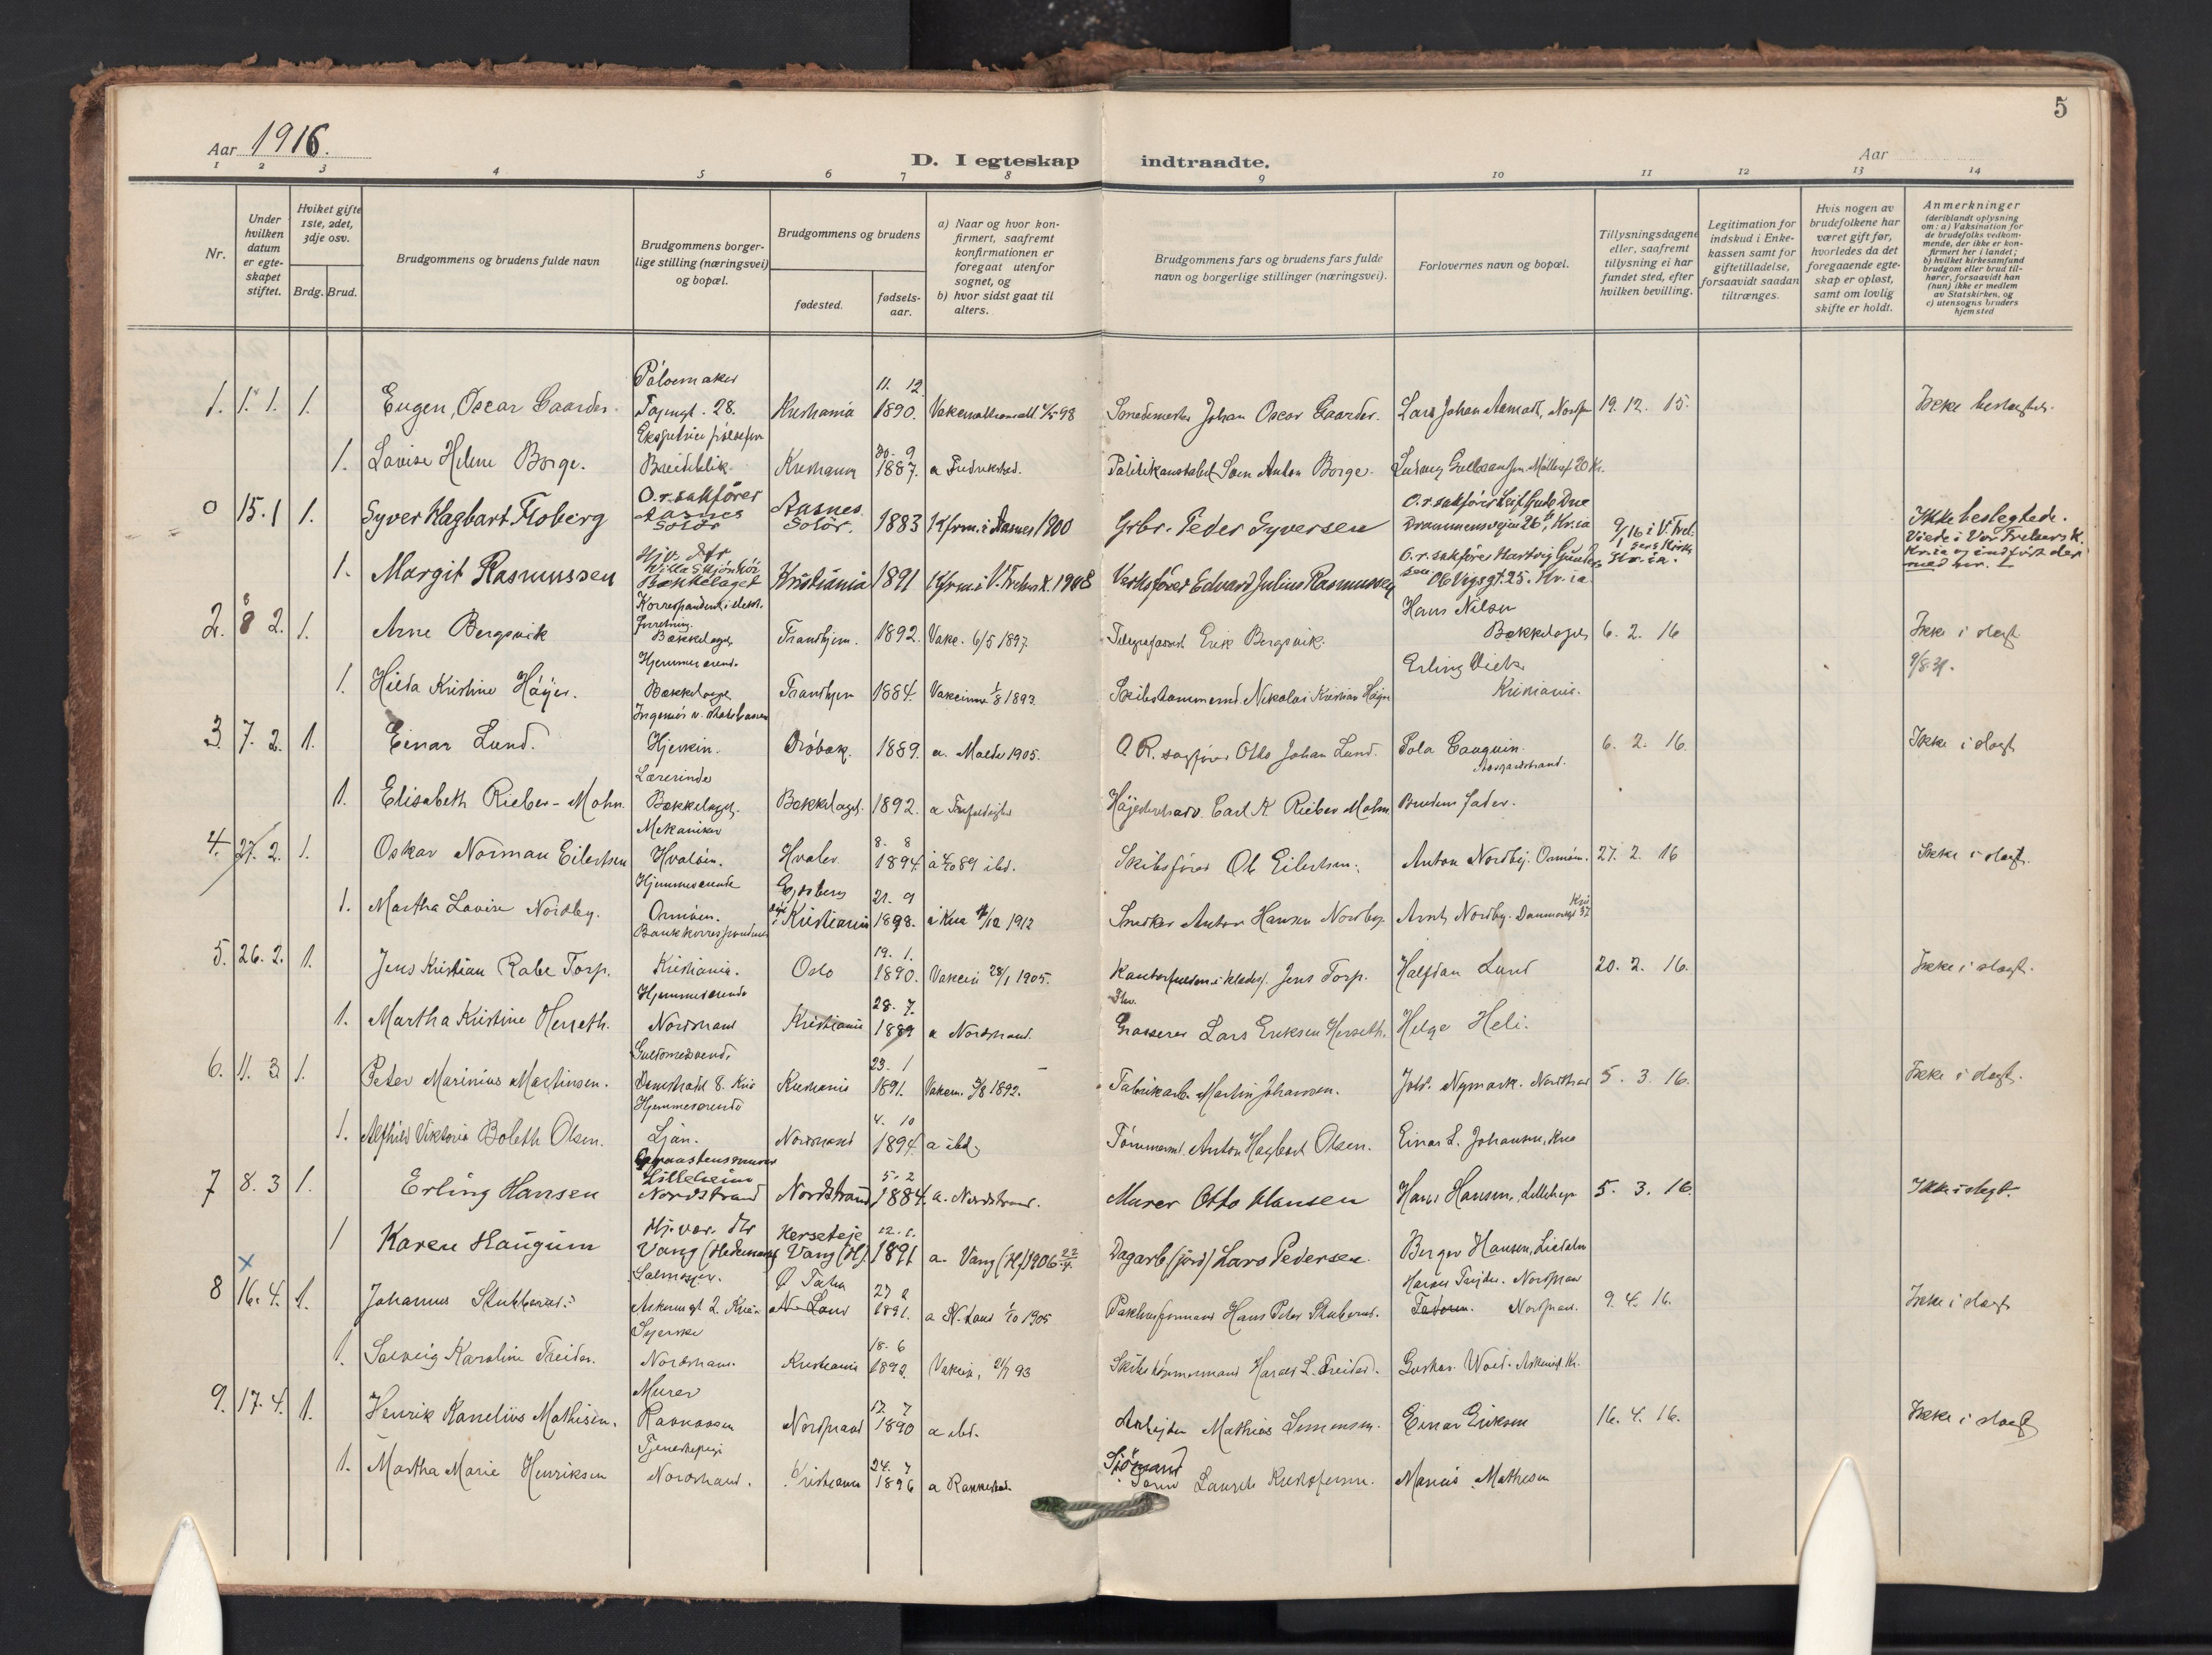 5
Aar 1916.
D. I egteskap indtraadte.
Aar
1 2 3 4 5 6 7 8 9 10 11 12 13 14
Nr.
Under hvilken datum er egteskapet stiftet.
Hvilket gifte 1ste, 2det, 3dje osv.
Brdg. Brud.
Brudgommens og brudens fulde navn
Brudgommens borgerlige stilling (næringsvei) og bopæl.
Brudgommens og brudens
fødested.
fødselsaar.
a) Naar og hvor konfirmert, saafremt konfirmationen er foregaat utenfor sognet, og
b) hvor sidst gaat til alters.
Brudgommens fars og brudens fars fulde navn og borgerlige stillinger (næringsvei).
Forlovernes navn og bopæl.
Tillysningsdagene eller, saafremt tillysning ei har fundet sted, efter hvilken bevilling.
Legitimation for indskud i Enkekassen samt for giftetilladelse, forsaavidt saadan tiltrænges.
Hvis nogen av brudefolkene har været gift før, hvorledes da det foregaaende egteskap er opløst, samt om lovlig skifte er holdt.
Anmerkninger
(deriblandt oplysning om: a) Vaksination for de brudefolks vedkommende, der ikke er konfirmert her i landet; b) hvilket kirkesamfund brudgom eller brud tilhører, forsaavidt han (hun) ikke er medlem av Statskirken, og c) utensogns bruders hjemsted
1. 1. 1. 1. Eugen, Oscar Gaarder. Pølsemaker Tøjengt. 28. Kristiania 11. 12 1890. Smedemester Johan Oscar Gaarder. Lars Johan Aamodt, 19. 12. 15. Ikke beslægtet.
1. Lovise Helene Borge. Breidablik Kristiania 30. 9 1887. a Fredrikstad. Politikonstabel Anton Borge.
0 15. 1 1. Syver Hagbart Floberg O.r.sakfører Aasnes Solør Aasnes Solør. 1883 Kfrm. i Aasnes 1900 Grbr. Peder Syversen O.r.sakfører Leif Gude Due Drammensveien 26b, Kr.ia 9/1 16 i V. Frel. sers Kirke Kr.ia. Ikke beslegtede. Viede i Vor Frelsers K. Kr.ia og indført der med nr. 1
1. Margit Rasmussen Hjv. dtr Villa Skjønhør Bækkelaget Kristiania 1891 Kfrm. i V. Frelsers K. 1908 Verksfører Edvard Julius Rasmussen O.r.sakfører Hartvig Gundersen Ole Vigsgt. 25. Kr.ia
2. 8 2. 1. Arne Bergsvik Korrespondent i Bækkelaget Trondhjem. 1892. Vakc. 6/5 1897. Erik Bergsvik. Hans Nilsen Bækkelaget 6. 2. 16 Ikke i slegt
1. Hilda Kristine Høyer. Hjemmeværende Bækkelaget Trondhjem 1884. 1893. Skibstømmermd. Nikolai Kristian Høyer Erling Kristiania. 9/8.31.
3. 7. 2. 1. Einar Lund. Ingeniør v. Statsbanen Hjerkin. Drøbak. 1889. a. Molde 1905. O.R. sagfører Otto Johan Lund. Pola Gauguin Aasgaardstrand. 6. 2. 16. Ikke i slegt
1. Elisabeth Rieber-Mohn. Lærerinde Bækkelaget. Bækkelaget. 1892. a Trefoldighed Høiesteretsadv. Carl K. Rieber Mohn Brudens fader.
4. 27. 2. 1. Oskar Norman Eilertsen Mekaniker Hvaløen. Hvaler 8. 8 1894. Skibsfører Ole Eilertsen. Anton Nordby. Ormøen. 27. 2. 16 Ikke i slegt.
1. Martha Lovise Nordby. Hjemmeværende Ormøen. Kristiania 21. 9 1898. 1912 Snedker Anton Hansen Nordby Arnt Nordby.
5. 26. 2. 1. Jens Kristian Rabe Torp. Bankkorrespondent Kristiania. Oslo 19. 1. 1890. Jens Torp. Halfdan Lund 20. 2. 16. Ikke i slegt.
1. Martha Kristine Herseth. Hjemmeværende Nordstrand Kristiania 28. 7. 1889 a Nordstrand. Grosserer Lars Eriksen Herseth. Helge Heli.
6. 11. 3 1. Peter Marinius Martinsen. Kristiania 23. 1 1891. 1892. Fabrikarb. Martin Johansen. Joh. Nymark. Nordstrand 5. 3. 16. Ikke i slegt.
1. Alfhild Viktoria Boleth Olsen. Hjemmeværende Ljan. Nordstrand 4. 10 1894. a ibd. Tømmermd. Anton Hagbart Olsen. Einar L. Johansen, Kria
7 8. 3 1. Erling Hansen Graastensmurer Lilleheim Nordstrand Nordstrand 5. 2 1884. a. Nordstrand. Murer Otto Hansen Hans Hansen, Lilleheim 5. 3. 16. Ikke i slegt.
1 Karen Haugum Hj. vær. dtr Vang (Hedemark) Kerseteje Vang (H.) 12. 6. 1891 a. Vang (H.) 1906 22/4 Dagarb (jord) Lars Pedersen. Berger Hansen,
8 16. 4. 1. Johannes Stubberud. Salmager. 27 2 1891. 1905 Hans Peter Stuberud. Nordstrand 9. 4. 16. Ikke i slegt
1. Solveig Karoline Treider. Syerske Nordstrand. Kristiania 18. 6 1892. 93 Skibstømmermand Harald L. Treider. Gustav
9. 17. 4. 1. Henrik Kornelius Mathisen. Murer Ravnaasen Nordstrand 17. 7 1890 a ibd. Arbeider Mathias Simensen. Einar Eriksen 16. 4. 16. Ikke i slegt
1. Martha Marie Henriksen Tjenestepige Nordstrand. Kristiania 24. 7 1896 a Rakkestad. Sjømand Laurits Kristofersen. Marius Mathisen